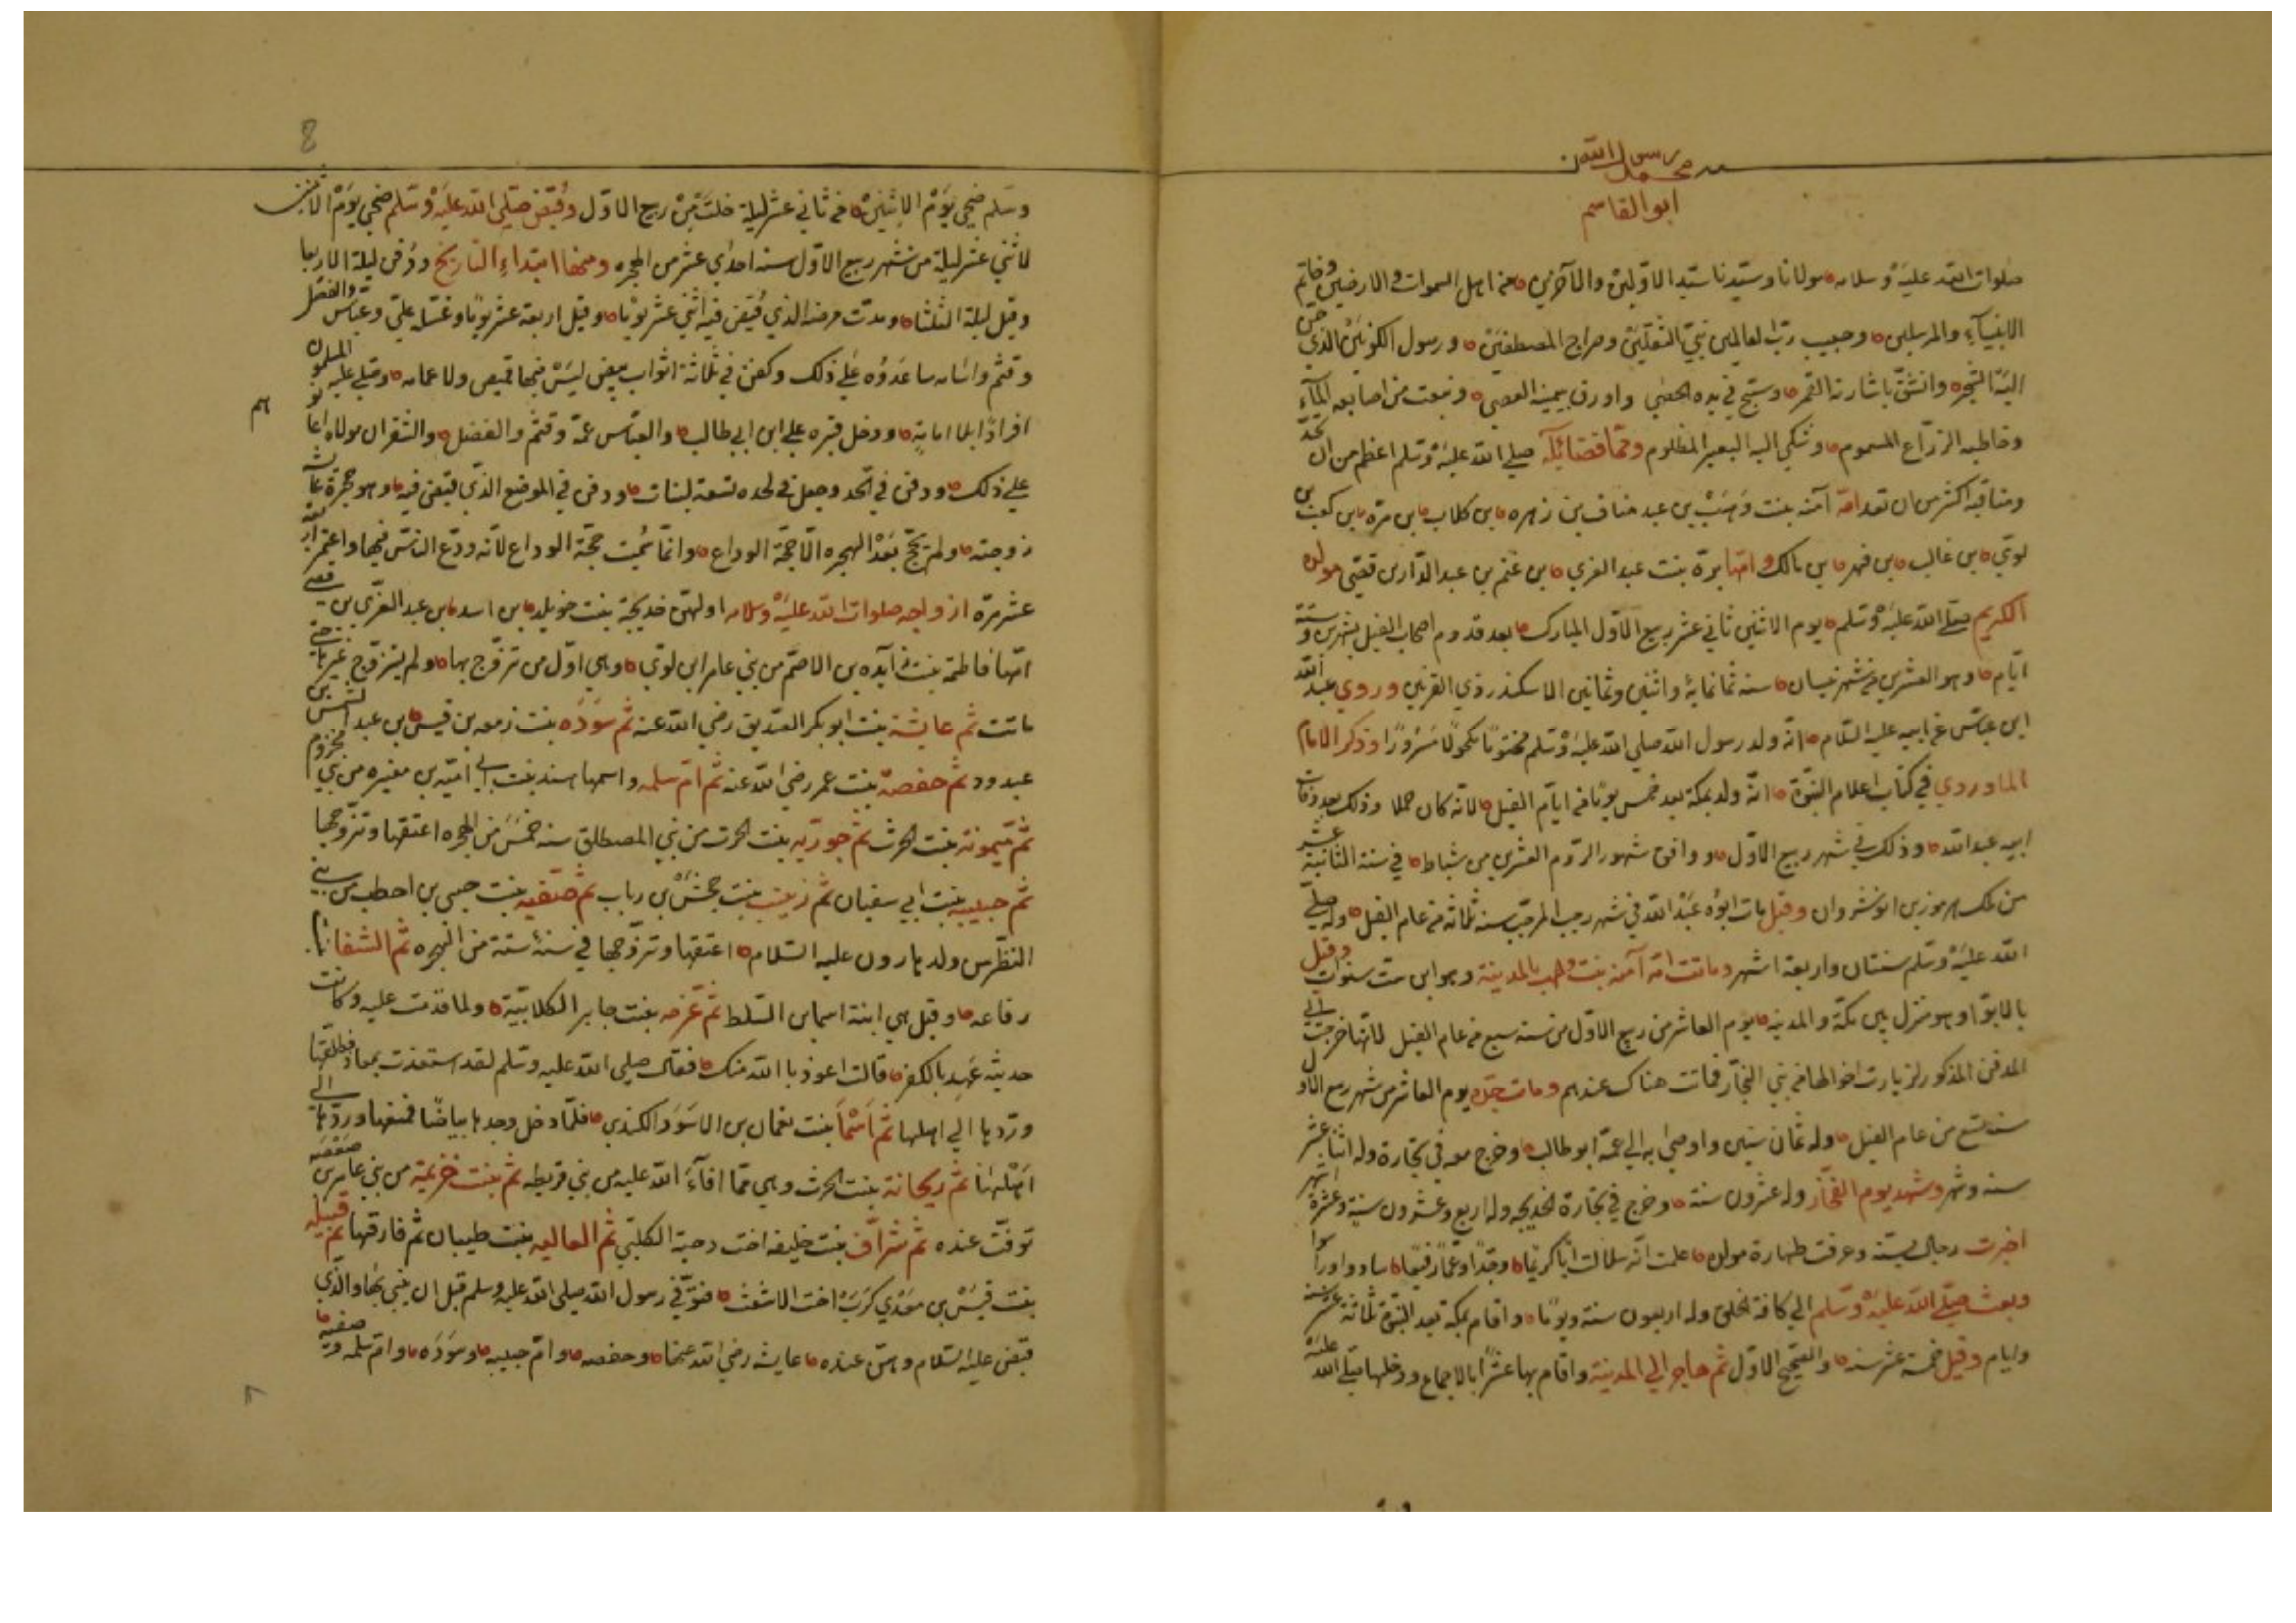 محمد رسول الله
ابو القاسم
صلوات الله عليه وسلامه مولانا وسيدنا سيد الاولين والآخرين من اهل السموات والارضين وخاتم
الانبياء والمرسلين وحبيب رب العالمين نبي الثقلين وسراج المصطفين ورسول الكونين الذي حن
اليه الشجره وانشق باشارته القمر وسبح في يده الحصى واورق بيمينه العصي ونبعت من اصابعه المآء
وخاطبه الزراع المسموم وشكي اليه البعير المظلوم وقمّا فضائله صلي الله عليه وسلم اعظم من ان تحدّ
ومناقبه اكثر من ان تعد امه آمنه بنت وهب بن عبد مناف بن زهره بن كلاب بن مرة بن كعب بن
لوي بن غالب بن فهر بن مالك وامها برة بنت عبد العزي بن غنم بن عبد الدار بن قصي مولده
الكريم صلي الله عليه وسلم يوم الاثنين ثاني عشر ربيع الاول المبارك بعد قدوم اصحاب الفيل بشهرين وستة
ايام وهو العشرين من شهر نيسان سنه ثمانمائة واثنين وثمانين الاسكندر ذي القرنين وروي عبد الله
ابن عباس عن ابيه عليه السلام انه ولد رسول الله صلي الله عليه وسلم مختونا مكحولا مسرورا وذكر الامام
الماوردي في كتاب اعلام النبوة انه ولد بمكة بعد خمسين يوما من ايام الفيل لانه كان حملا وذلك بعد وفات
ابيه عبد الله وذلك في شهر ربيع الاول ووافق شهور الروم العشرين من شباط في سنة الثانية عشر
من ملك هرمز بن انوشروان وقيل مات ابوه عبد الله في شهر رجب المرجب سنه ثلاثه من عام الفيل وله صلي
الله عليه وسلم سنتان واربعة اشهر وماتت امه آمنه بنت وهب بالمدينة وهو ابن ست سنوات وقيل
بالابوا وهو منزل بين مكة والمدينه يوم العاشر من ربيع الاول من سنه سبع من عام الفيل لانها خرجت الي
المدفن المذكور لزيارت اخوالها من بني النجار فماتت هناك عندهم ومات جده يوم العاشر من شهر ربيع الاول
سنه تسع من عام الفيل وله ثمان سنين واوصى به الي عمه ابو طالب وخرج معه في تجارة وله اثنا عشر
سنه وشهر وشهد يوم الفجار وله عشرون سنة وخرج في تجارة لخديجه وله اربع وعشرون سنة وعشرة اشهر
اخبرت رجال بسته وعرفت طهارة مولده علمت انه سلالات ابا كريما وجدا وعما رفيعا سادوا وراسوا
وبعث صلي الله عليه وسلم الي كافة الخلق وله اربعون سنة ويوما واقام بمكة بعد النبوة ثلاثة عشر سنة
وايام وقيل خمسة عشر سنه والصحيح الاول ثم هاجر الي المدينة واقام بها عشرا بالاجماع ودخلها صلي الله عليه
8
وسلم ضحي يوم الاثنين في ثاني عشر ليلة خلت من ربيع الاول وقبض صلي الله عليه وسلم ضحي يوم الاثنين
لاثني عشر ليلة من شهر ربيع الاول سنه احدي عشر من الهجره ومنها ابتداء التاريخ ودفن ليلة الاربعا
وقيل ليلة الثلثا ومدت مرضه الذي قبض فيه اثني عشر يوما وقيل اربعة عشر يوما وغسله علي وعباس والفضل
وقثم واسامه ساعدوه علي ذلك وكفن في ثلاثة اثواب بيض ليس فيها قميص ولا عمامه وصلي عليه المسلمون
افرادا بلا امامة ودخل قبره علي ابن ابي طالب والعباس عمه وقثم والفضل والشقران مولاه اعانوهم
علي ذلك ودفن في اللحد وجعل في لحده تسعة لبنات ودفن في الموضع الذي قبض فيه وهو حجرة عائشه
زوجته ولم يحج بعد الهجره الا حجة الوداع وانما سميت حجة الوداع لانه ودع الناس فيها واعتمر اربعة
عشر مرة ازواجه صلوات الله عليه وسلامه اولهن خديجة بنت خويلد بن اسد بن عبد العزي بن قصي
امها فاطمة بنت زآيده بن الاصم من بني عامر ابن لوي وهي اول من تزوج بها ولم يتزوج غيرها حتي
ماتت ثم عايشة بنت ابو بكر الصديق رضي الله عنه ثم سوده بنت زمعه بن قيس بن عبد الشمس بن
عبدود ثم حفصة بنت عمر رضي الله عنه ثم ام سلمه واسمها هند بنت ابي اميه بن مغيره من بني مخزوم
ثم ميمونة بنت الحرث ثم جوريه بنت الحرث من بني المصطلق سنه خمس من الهجره اعتقها وتزوجها
ثم حبيبه بنت ابي سفيان ثم زينب بنت جحش بن رباب ثم صفيه بنت حيي بن احطب من بني
النظر من ولد هارون عليه السلام اعتقها وتزوجها في سنة ستة من الهجره ثم الشفا
رفاعه وقيل هي ابنة اسما بن السلط ثم غزمه بنت جابر الكلابية ولما قدمت عليه وكانت
حديثه عهد بالكفر قالت اعوذ بالله منك فقال صلي الله عليه وسلم لقد استعذت بمعاذ فطلقها
وردها الي اهلها ثم اسما بنت نعمان بن الاسود الكندي فلما دخل وجد بها بياضا فمتعها وردها الي
اهلها ثم ريحانة بنت الحرث وهي مما افآء الله عليه من بني قريظه ثم بنت خزيمة من بني عامر بن صعصعه
توفت عنده ثم شراف بنت خليفه اخت دحية الكلبي ثم العاليه بنت طيبان ثم فارقها ثم قبيله
بنت قيس بن معدي كرب اخت الاشعث فتوفي رسول الله صلي الله عليه وسلم قبل ان يبني بها والذي
قبض عليه السلام وهن عنده عايشه رضي الله عنها وحفصه وام حبيبه وسوده وام سلمه وصفيه
٨